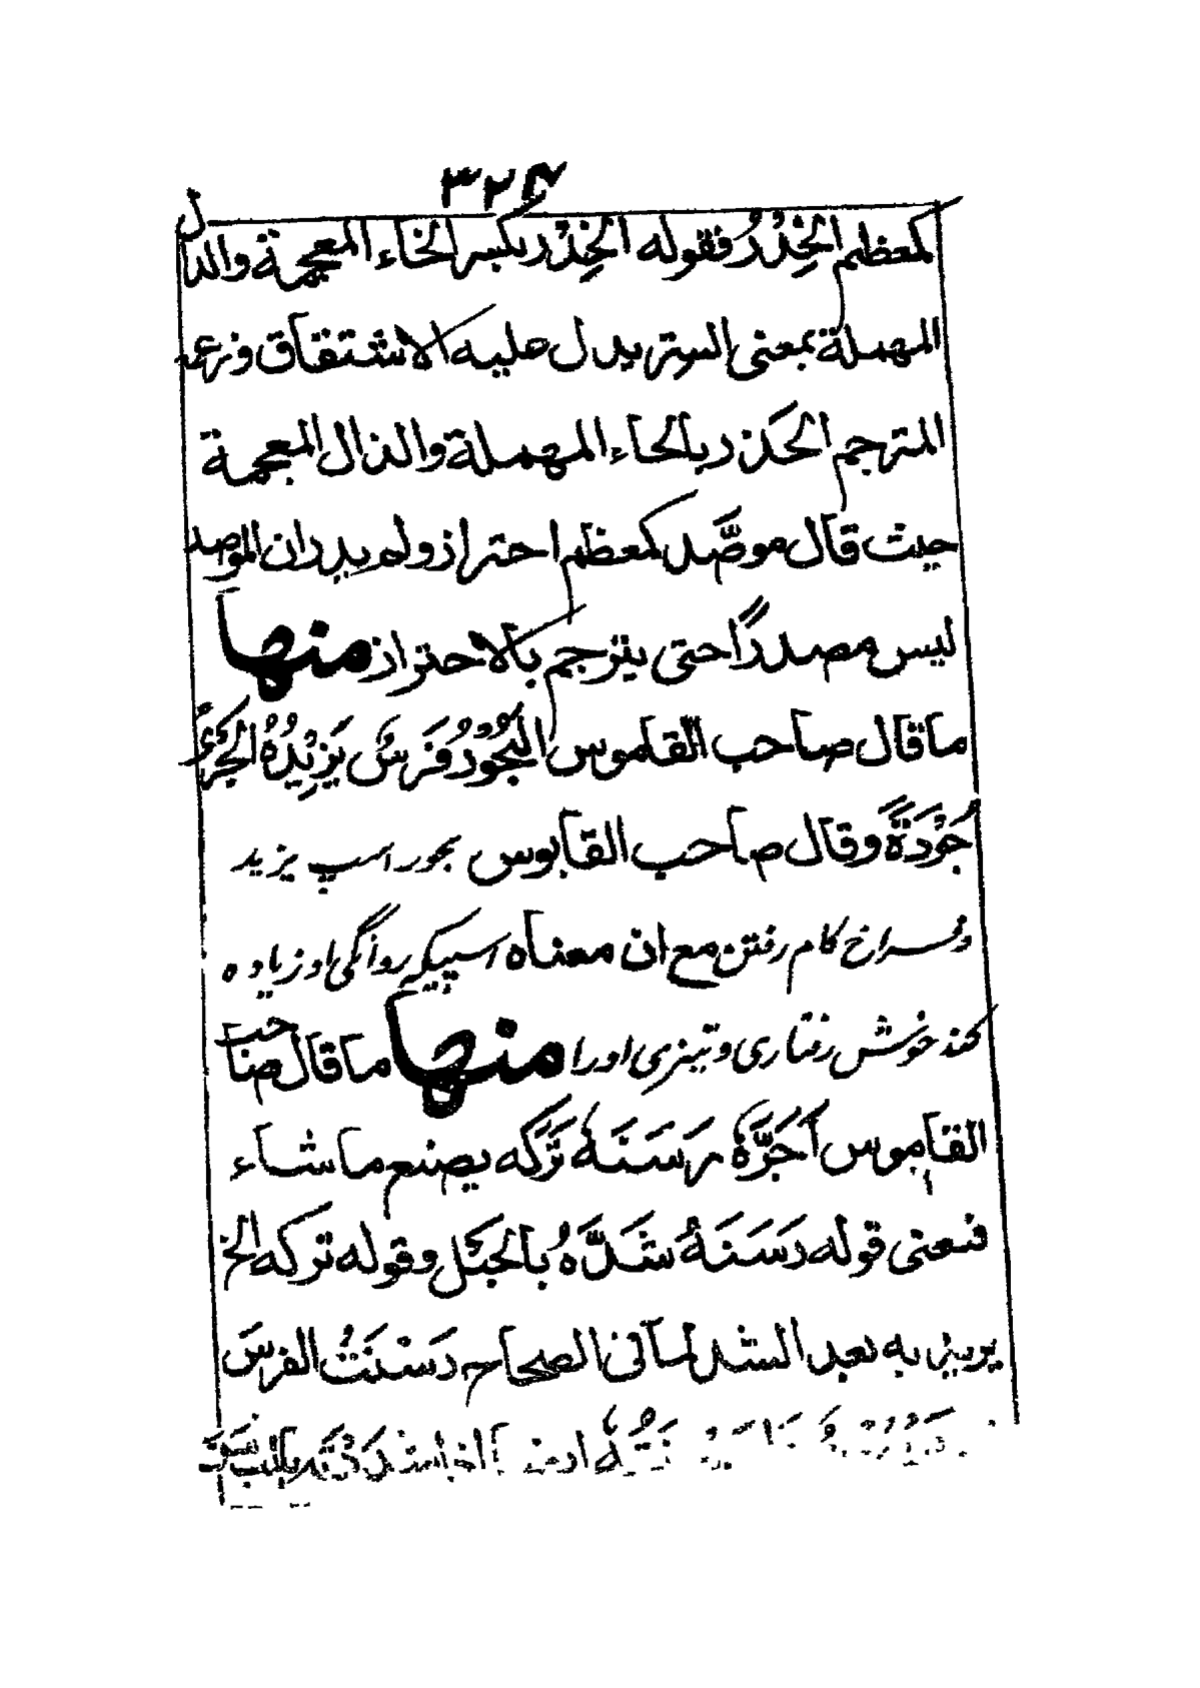 ٣٢٤
كمعظم الخِدْرُ فقوله الخِدْر بكسر الخاء المعجمة والدال
المهملة بمعنى الستر يدل عليه الاشتقاق وزعم
المترجم الحَذر بالحاء المهملة والذال المعجمة
حيث قال موصَّد كمعظم احتراز ولم يدر ان الموصد
ليس مصدرًا حتى يترجم بالاحتراز منها
ما قال صاحب القاموس البُحُورُ فَرَسٌ يَزِيْدُهُ الجَرْىُ
جُوْدَةً وقال صاحب القابوس بحور اسپ يزيد
و فراخ كام رفتن مع ان معناه اسپيكه روانگى او زياده
كند خوش رفتارى و تيزى اورا منها ما قال صاحب
القاموس أَجَرَّهُ رَسَنَهُ تَرَكَه يصنع ما شاء
فمعنى قوله رَسَنَهُ شَدَّهُ بالحَبْل وقوله تركه الخ
يريد به بعد الشد لما فى الصحاح رَسَنْتُ الفرسَ